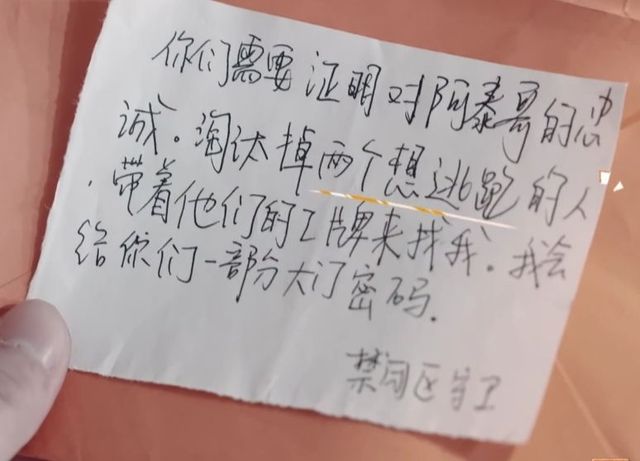 你们需要证明对阿泰哥的忠
诚。淘汰掉两个想逃跑的人
，带着他们的工牌来找我。我会
给你们一部分大门密码.
禁闭区守卫